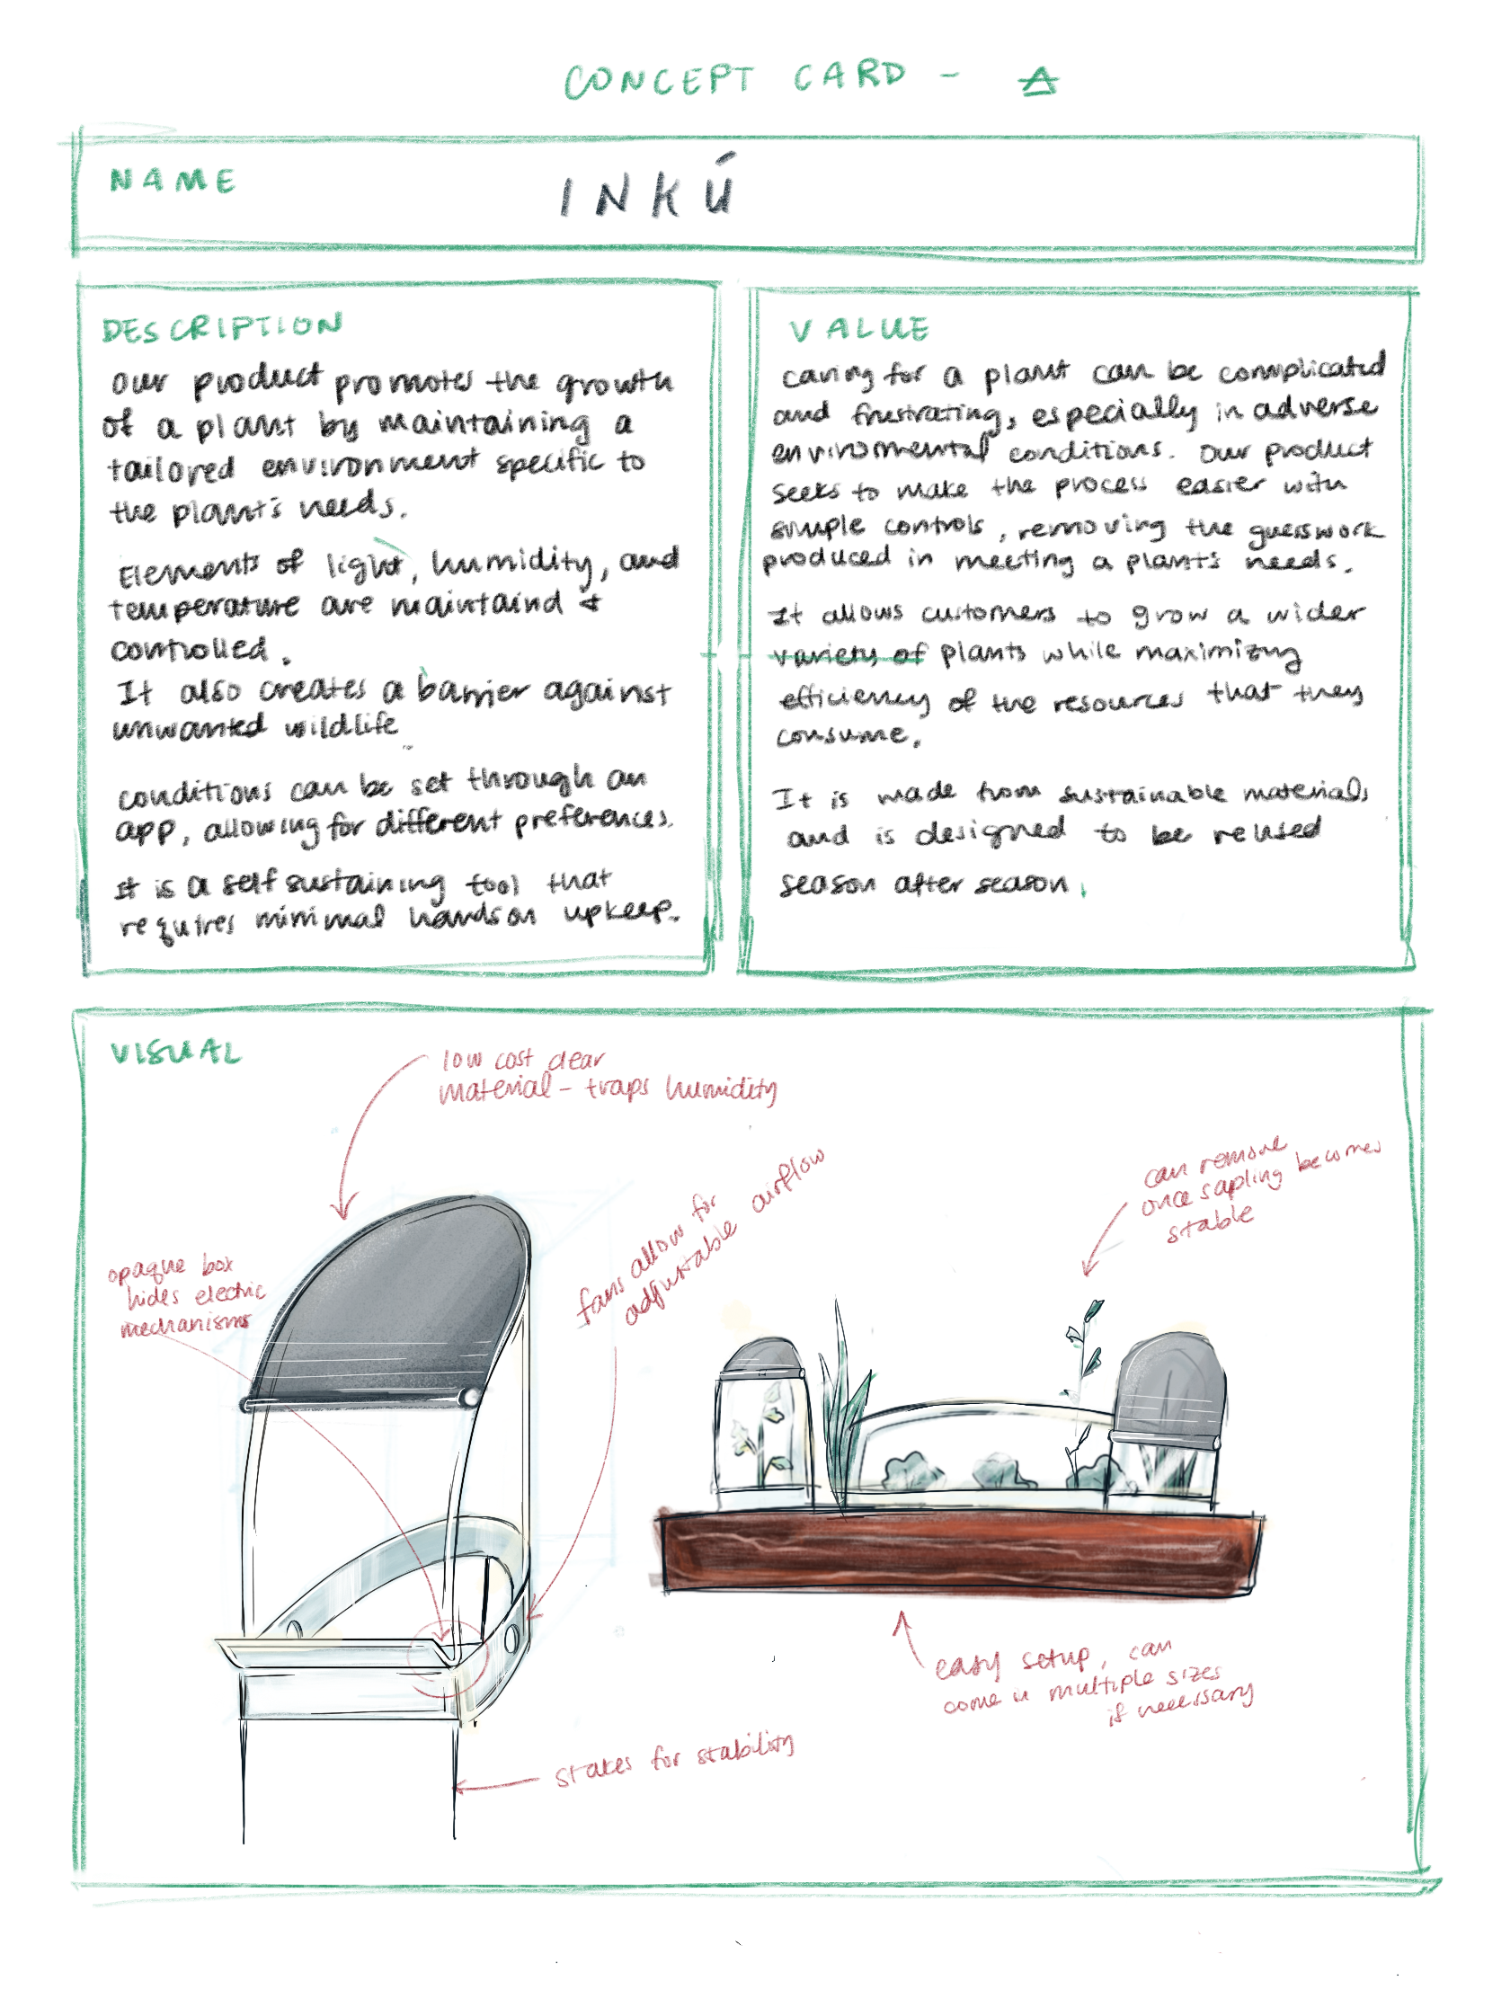 CONCEPT CARD - A
NAME
INKÚ
DESCRIPTION
our product promotes the growth
of a plant by maintaining a
tailored environment specific to
the plant's needs.
Elements of light, humidity, and
temperature are maintaind &
controlled.
It also creates a barrier against
unwanted wildlife
conditions can be set through an
app, allowing for different preferences.
It is a self sustaining tool that
requires minimal hands on upkeep.
VALUE
caring for a plant can be complicated
and frustrating, especially in adverse
enviromental conditions. Our product
seeks to make the process easier with
simple controls, removing the guesswork
produced in meeting a plant's needs.
It allows customers to grow a wider
variety of plants while maximizing
efficiency of the resources that they
consume.
It is made from sustainable materials
and is designed to be reused
season after season.
VISUAL
low cost clear
material - traps humidity
opaque box
hides electric
mechanisms
fans allow for
adjustable airflow
can remove
once sapling becomes
stable
easy setup, can
come in multiple sizes
if necessary
stakes for stability